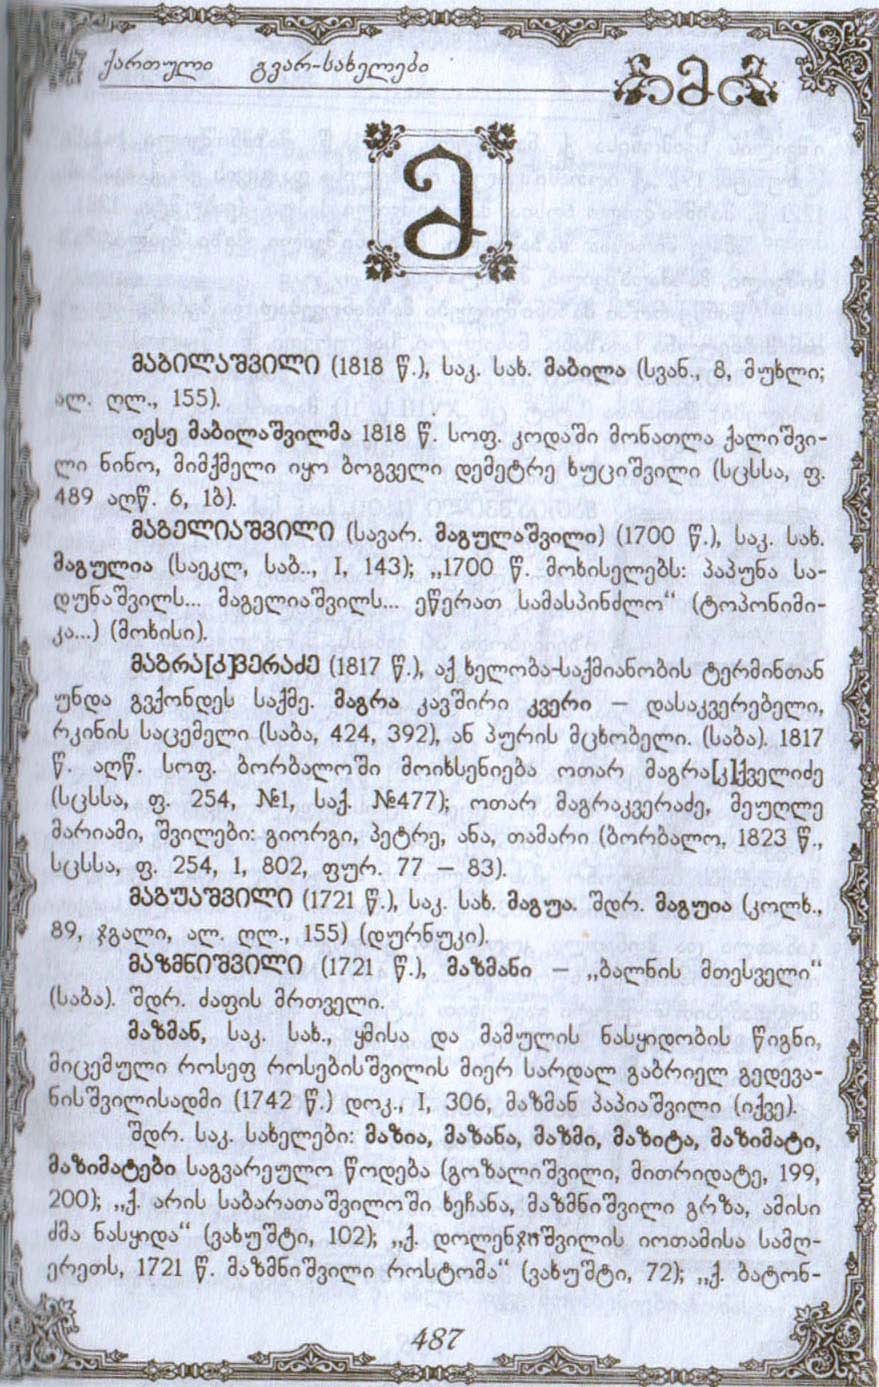 ქართული გვარ-სახელები
მ
მ
მაბილაშვილი (1818 წ.), საკ. სახ. მაბილა (სვან., 8, მუხლი;
ალ. ღლ., 155).
იესე მაბილაშვილმა 1818 წ. სოფ. კოდაში მონათლა ქალიშვი-
ლი ნინო, მიმქმელი იყო ბოგველი დემეტრე ხუციშვილი (სცსსა, ფ.
489 აღწ. 6, 1ბ).
მაგელიაშვილი (სავარ. მაგულაშვილი) (1700 წ.), საკ. სახ.
მაგულია (საეკლ, საბ.., I, 143); „1700 წ. მოხისელებს: პაპუნა სა-
დუნაშვილს... მაგელიაშვილს... ეწერათ სამასპინძლო“ (ტოპონიმი-
კა...) (მოხისი).
მაგრა[კ]ვერაძე (1817 წ.), აქ ხელობა-საქმიანობის ტერმინთან
უნდა გვქონდეს საქმე. მაგრა კავშირი კვერი — დასაკვერებელი,
რკინის საცემელი (საბა, 424, 392), ან პურის მცხობელი. (საბა). 1817
წ. აღწ. სოფ. ბორბალოში მოიხსენიება ოთარ მაგრა[კ]ქველიძე
(სცსსა, ფ. 254, №1, საქ. №477); ოთარ მაგრაკვერაძე, მეუღლე
მარიამი, შვილები: გიორგი, პეტრე, ანა, თამარი (ბორბალო, 1823 წ.,
სცსსა, ფ. 254, 1, 802, ფურ. 77 — 83).
მაგუაშვილი (1721 წ.), საკ. სახ. მაგუა. შდრ. მაგუია (კოლხ.,
89, ჯგალი, ალ. ღლ., 155) (დურნუკი).
მაზმნიშვილი (1721 წ.), მაზმანი — „ბალნის მთესველი“
(საბა). შდრ. ძაფის მრთველი.
მაზმან, საკ. სახ., ყმისა და მამულის ნასყიდობის წიგნი,
მიცემული როსეფ როსებისშვილის მიერ სარდალ გაბრიელ გედევა-
ნისშვილისადმი (1742 წ.) დოკ., I, 306, მაზმან პაპიაშვილი (იქვე).
შდრ. საკ. სახელები: მაზია, მაზანა, მაზმი, მაზიტა, მაზიმატი,
მაზიმატები საგვარეულო წოდება (გოზალიშვილი, მითრიდატე, 199,
200); „ქ. არის საბარათაშვილოში ხეჩანა, მაზმნიშვილი გრზა, ამისი
ძმა ნასყიდა“ (ვახუშტი, 102); „ქ. დოლენჯიშვილის იოთამისა სამღ-
ერეთს, 1721 წ. მაზმნიშვილი როსტომა“ (ვახუშტი, 72); „ქ. ბატონ-
487